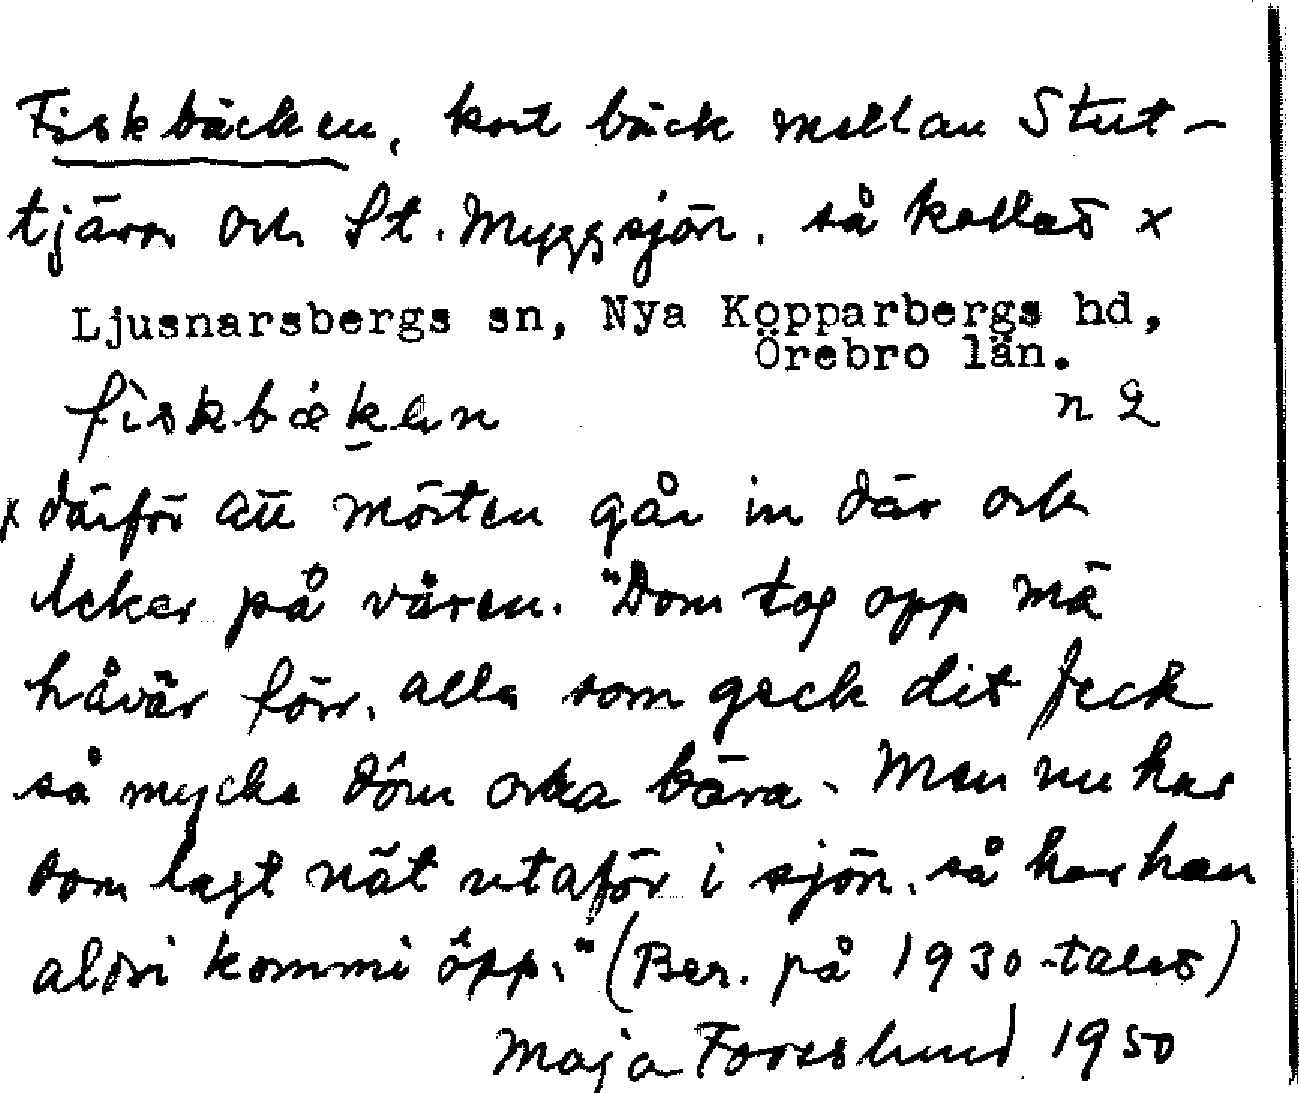 Fiskbäcken, kort bäck mellan Stut-
tjärn och St. Myggsjön, så kallad x
Ljusnarsbergs sn, Nya Kopparbergs hd,
Örebro län.
fìskbæ̀ken n 2
x därför att mörten går in där och
leker på våren. "Dom tog opp mä
håvär förr, alla som geck dit feck
så mycke dôm orka bära. Men nu har
dom lagt nät utaför i sjön, så har han
aldri kommi ôpp." (Ber. på 1930-talet)
Maja Forsslund 1950